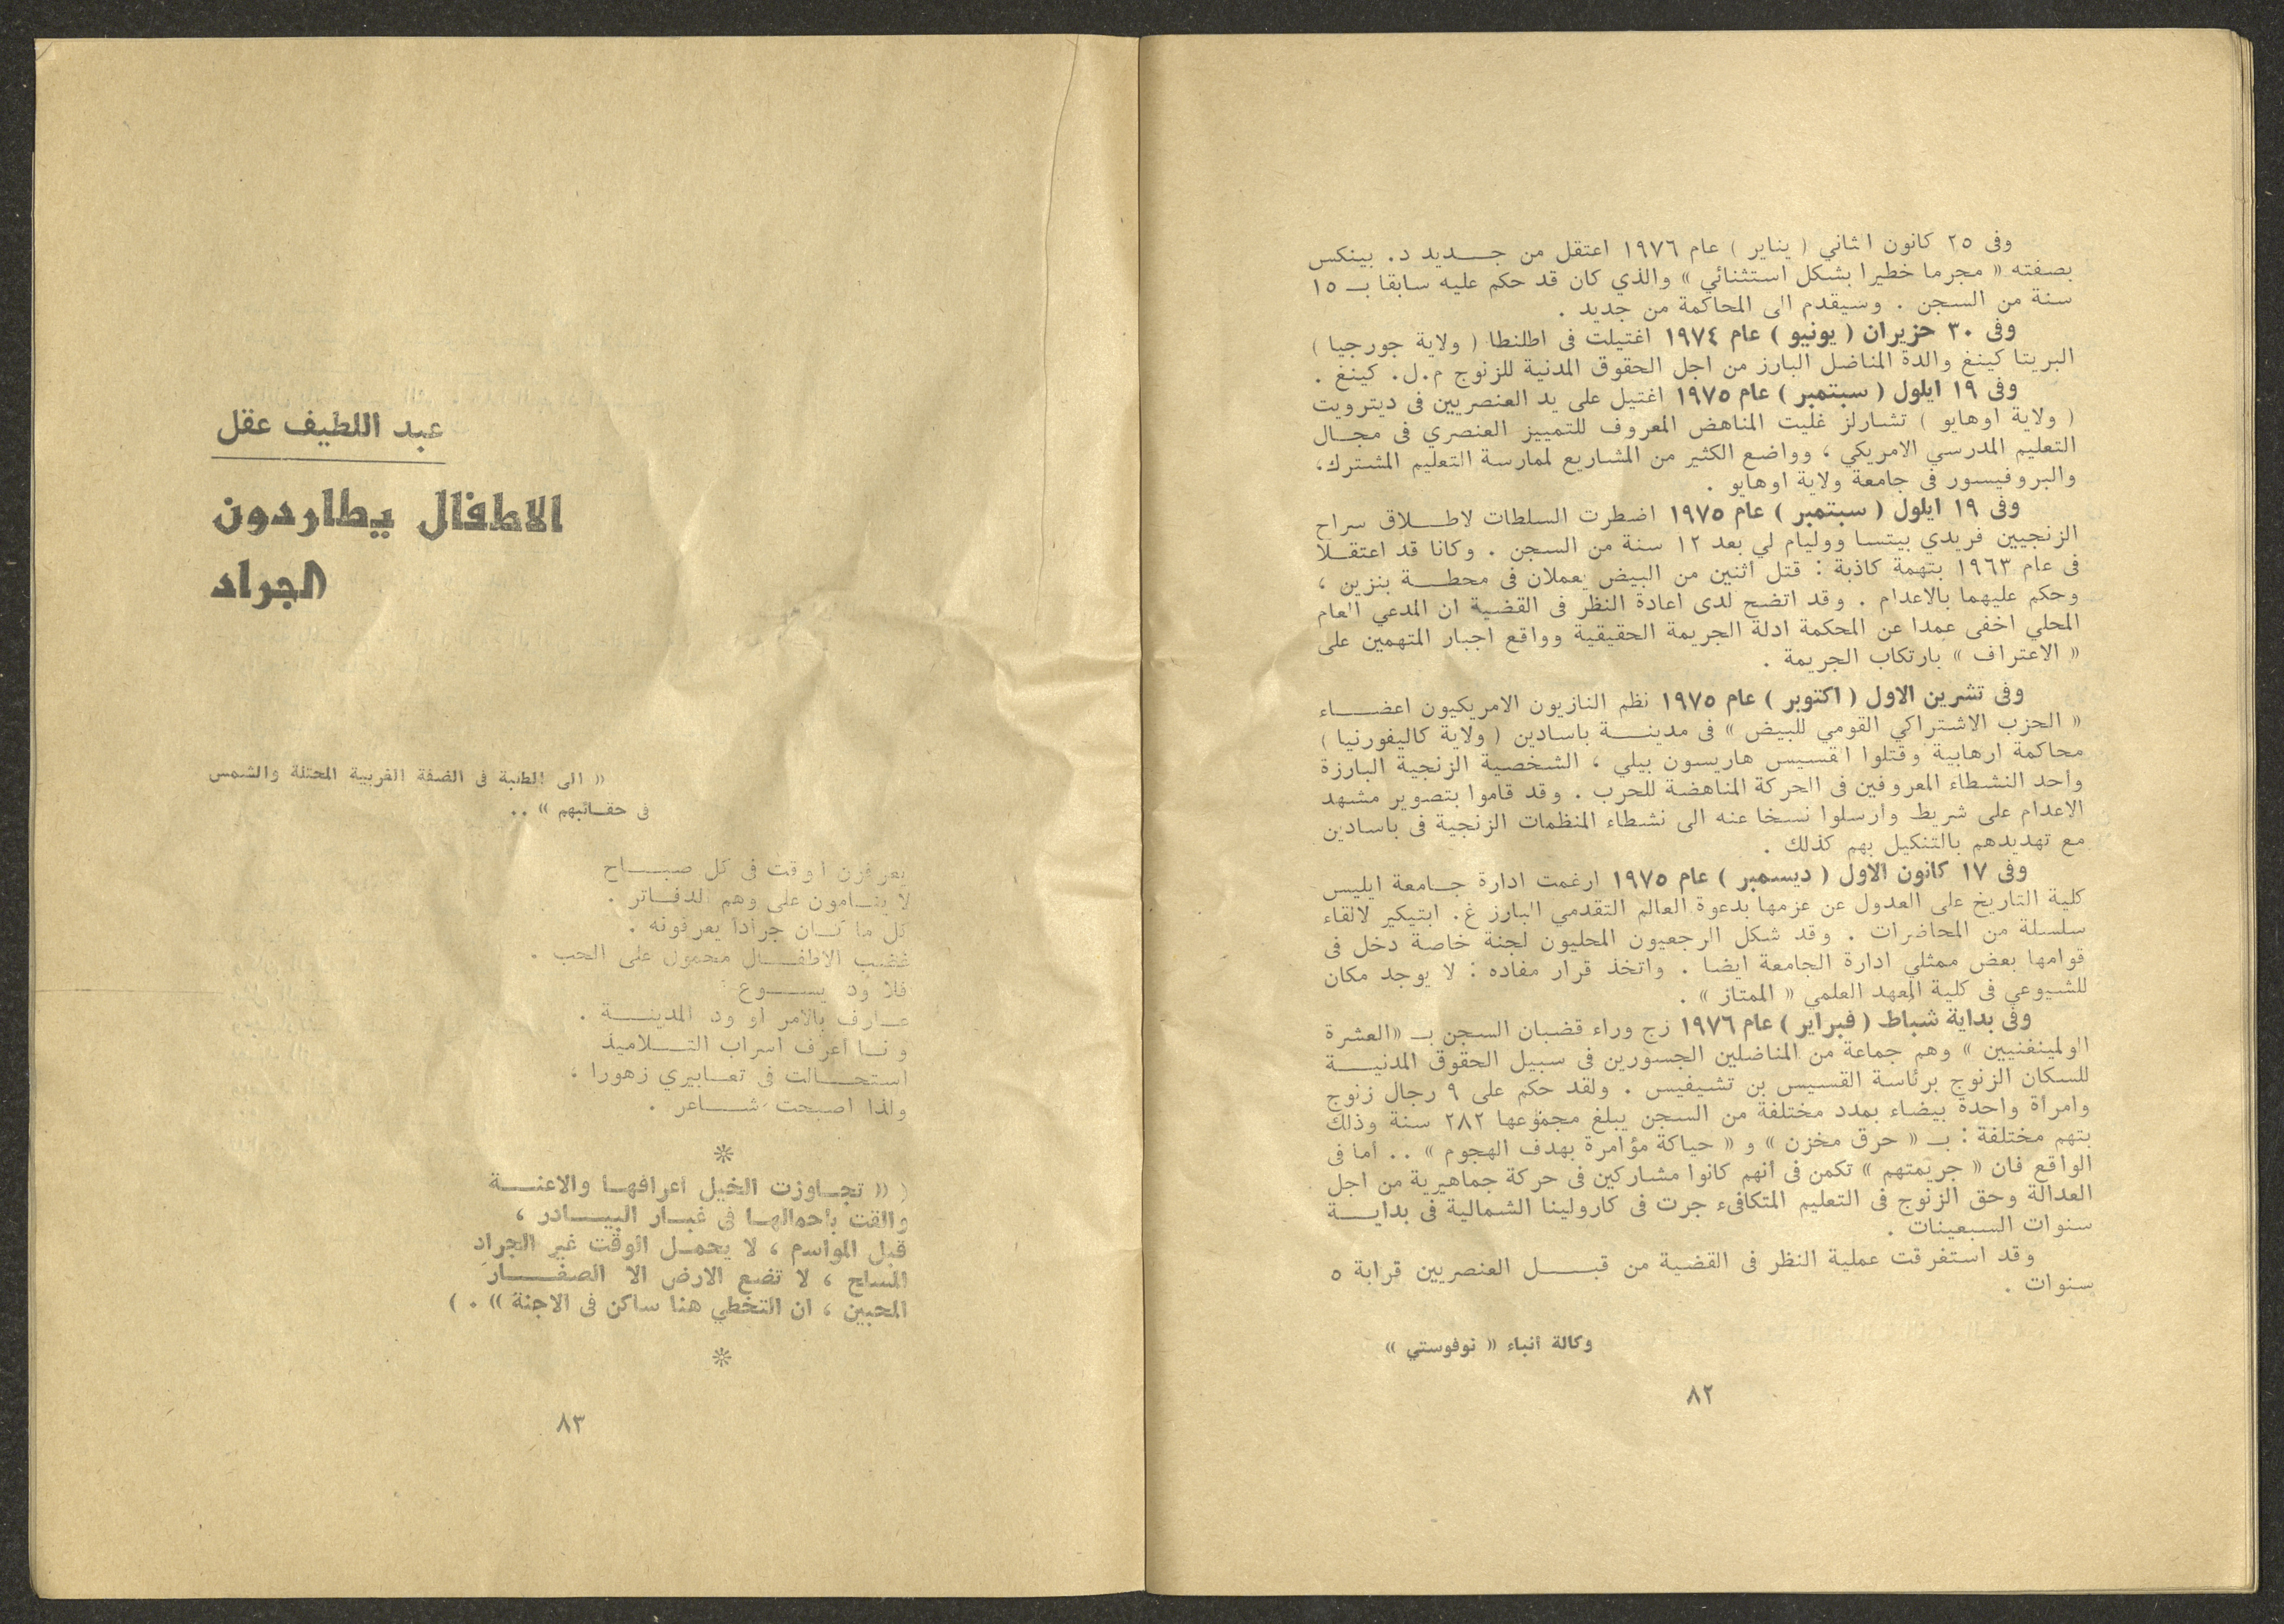 وفى ٢٥ كانون الثاني ( يناير ) عام ١٩٧٦ اعتقل من جـــديد د. بينكس
بصفته « مجرما خطيرا بشكل استثنائي » والذي كان قد حكم عليه سابقا بـ ١٥
سنة من السجن . وسيقدم الى المحاكمة من جديد .
وفى ٣٠ حزيران ( يونيو ) عام ١٩٧٤ اغتيلت فى اطلنطا ( ولاية جورجيا )
البريتا كينغ والدة المناضل البارز من اجل الحقوق المدنية للزنوج م.ل. كينغ .
وفى ١٩ ايلول ( سبتمبر ) عام ١٩٧٥ اغتيل على يد العنصريين فى ديترويت
( ولاية اوهايو ) تشارلز غليت المناهض المعروف للتمييز العنصري فى مجـال
التعليم المدرسي الامريكي ، وواضع الكثير من المشاريع لممارسة التعليم المشترك،
والبروفيسور فى جامعة ولاية اوهايو .
وفى ١٩ ايلول ( سبتمبر ) عام ١٩٧٥ اضطرت السلطات لاطـــلاق سراح
الزنجيين فريدي بيتسا ووليام لي بعد ١٢ سنة من السجن . وكانا قد اعتقـلا
فى عام ١٩٦٣ بتهمة كاذبة : قتل اثنين من البيض يعملان فى محطـــة بنزين ،
وحكم عليهما بالاعدام . وقد اتضح لدى اعادة النظر فى القضية ان المدعي العام
المحلي اخفى عمدا عن المحكمة ادلة الجريمة الحقيقية وواقع اجبار المتهمين على
« الاعتراف » بارتكاب الجريمة .
وفى تشرين الاول ( اكتوبر ) عام ١٩٧٥ نظم النازيون الامريكيون اعضــــاء
« الحزب الاشتراكي القومي للبيض » فى مدينـــة باسادين ( ولاية كاليفورنيا )
محاكمة ارهابية وقتلوا القسيس هاريسون بيلي ، الشخصية الزنجية البارزة
واحد النشطاء المعروفين فى الحركة المناهضة للحرب . وقد قاموا بتصوير مشهد
الاعدام على شريط وارسلوا نسخا عنه الى نشطاء المنظمات الزنجية فى باسادين
مع تهديدهم بالتنكيل بهم كذلك .
وفى ١٧ كانون الاول ( ديسمبر ) عام ١٩٧٥ ارغمت ادارة جـامعة ايليس
كلية التاريخ على العدول عن عزمها بدعوة العالم التقدمي البارز غ. ابتيكير لالقاء
سلسلة من المحاضرات . وقد شكل الرجعيون المحليون لجنة خاصة دخل فى
قوامها بعض ممثلي ادارة الجامعة ايضا . واتخذ قرار مفاده : لا يوجد مكان
للشيوعي فى كلية المعهد العلمي « الممتاز » .
وفى بداية شباط ( فبراير ) عام ١٩٧٦ زج وراء قضبان السجن بـ «العشرة
الولمينغنيين » وهم جماعة من المناضلين الجسورين فى سبيل الحقوق المدنيـــة
للسكان الزنوج برئاسة القسيس بن تشيفيس . ولقد حكم على ٩ رجال زنوج
وامرأة واحدة بيضاء بمدد مختلفة من السجن يبلغ مجموعها ٢٨٢ سنة وذلك
بتهم مختلفة : بـ « حرق مخزن » و « حياكة مؤامرة بهدف الهجوم » .. أما فى
الواقع فان « جريمتهم » تكمن فى أنهم كانوا مشاركين فى حركة جماهيرية من اجل
العدالة وحق الزنوج فى التعليم المتكافىء جرت فى كارولينا الشمالية فى بدايـــة
سنوات السبعينات .
وقد استغرقت عملية النظر فى القضية من قبـــل العنصريين قرابة ٥
سنوات .
وكالة أنباء « نوفوستي »
٨٢
عبد اللطيف عقل
الاطفال يطاردون
الجراد
« الى الطلبة فى الضفة الغربية المحتلة والشمس
فى حقـائبهم » ..
يعرفون الوقت فى كل صبـــاح
لا ينـامون على وهم الدفـاتر .
كل ما كـان جرادا يعرفونه .
غضب الاطفـــال محمول على الحب .
فلا ود يســـوع
عـارف بالامر او ود المدينـــة .
وأنـا أعرف أسراب التـــلاميذ
استحـــالت فى تعـابيري زهورا .
ولذا اصبحت شـــاعر .
*
( « تجـاوزت الخيل اعرافهـا والاعنـــة
والقت باحمالهـا فى غبـار البيـــادر ،
قبل المواسم ، لا يحمـل الوقت غير الجراد
المسلح ، لا تضع الارض الا الصغـــار
المحبين ، ان التخطي هنا ساكن فى الاجنة » . )
*
٨٣